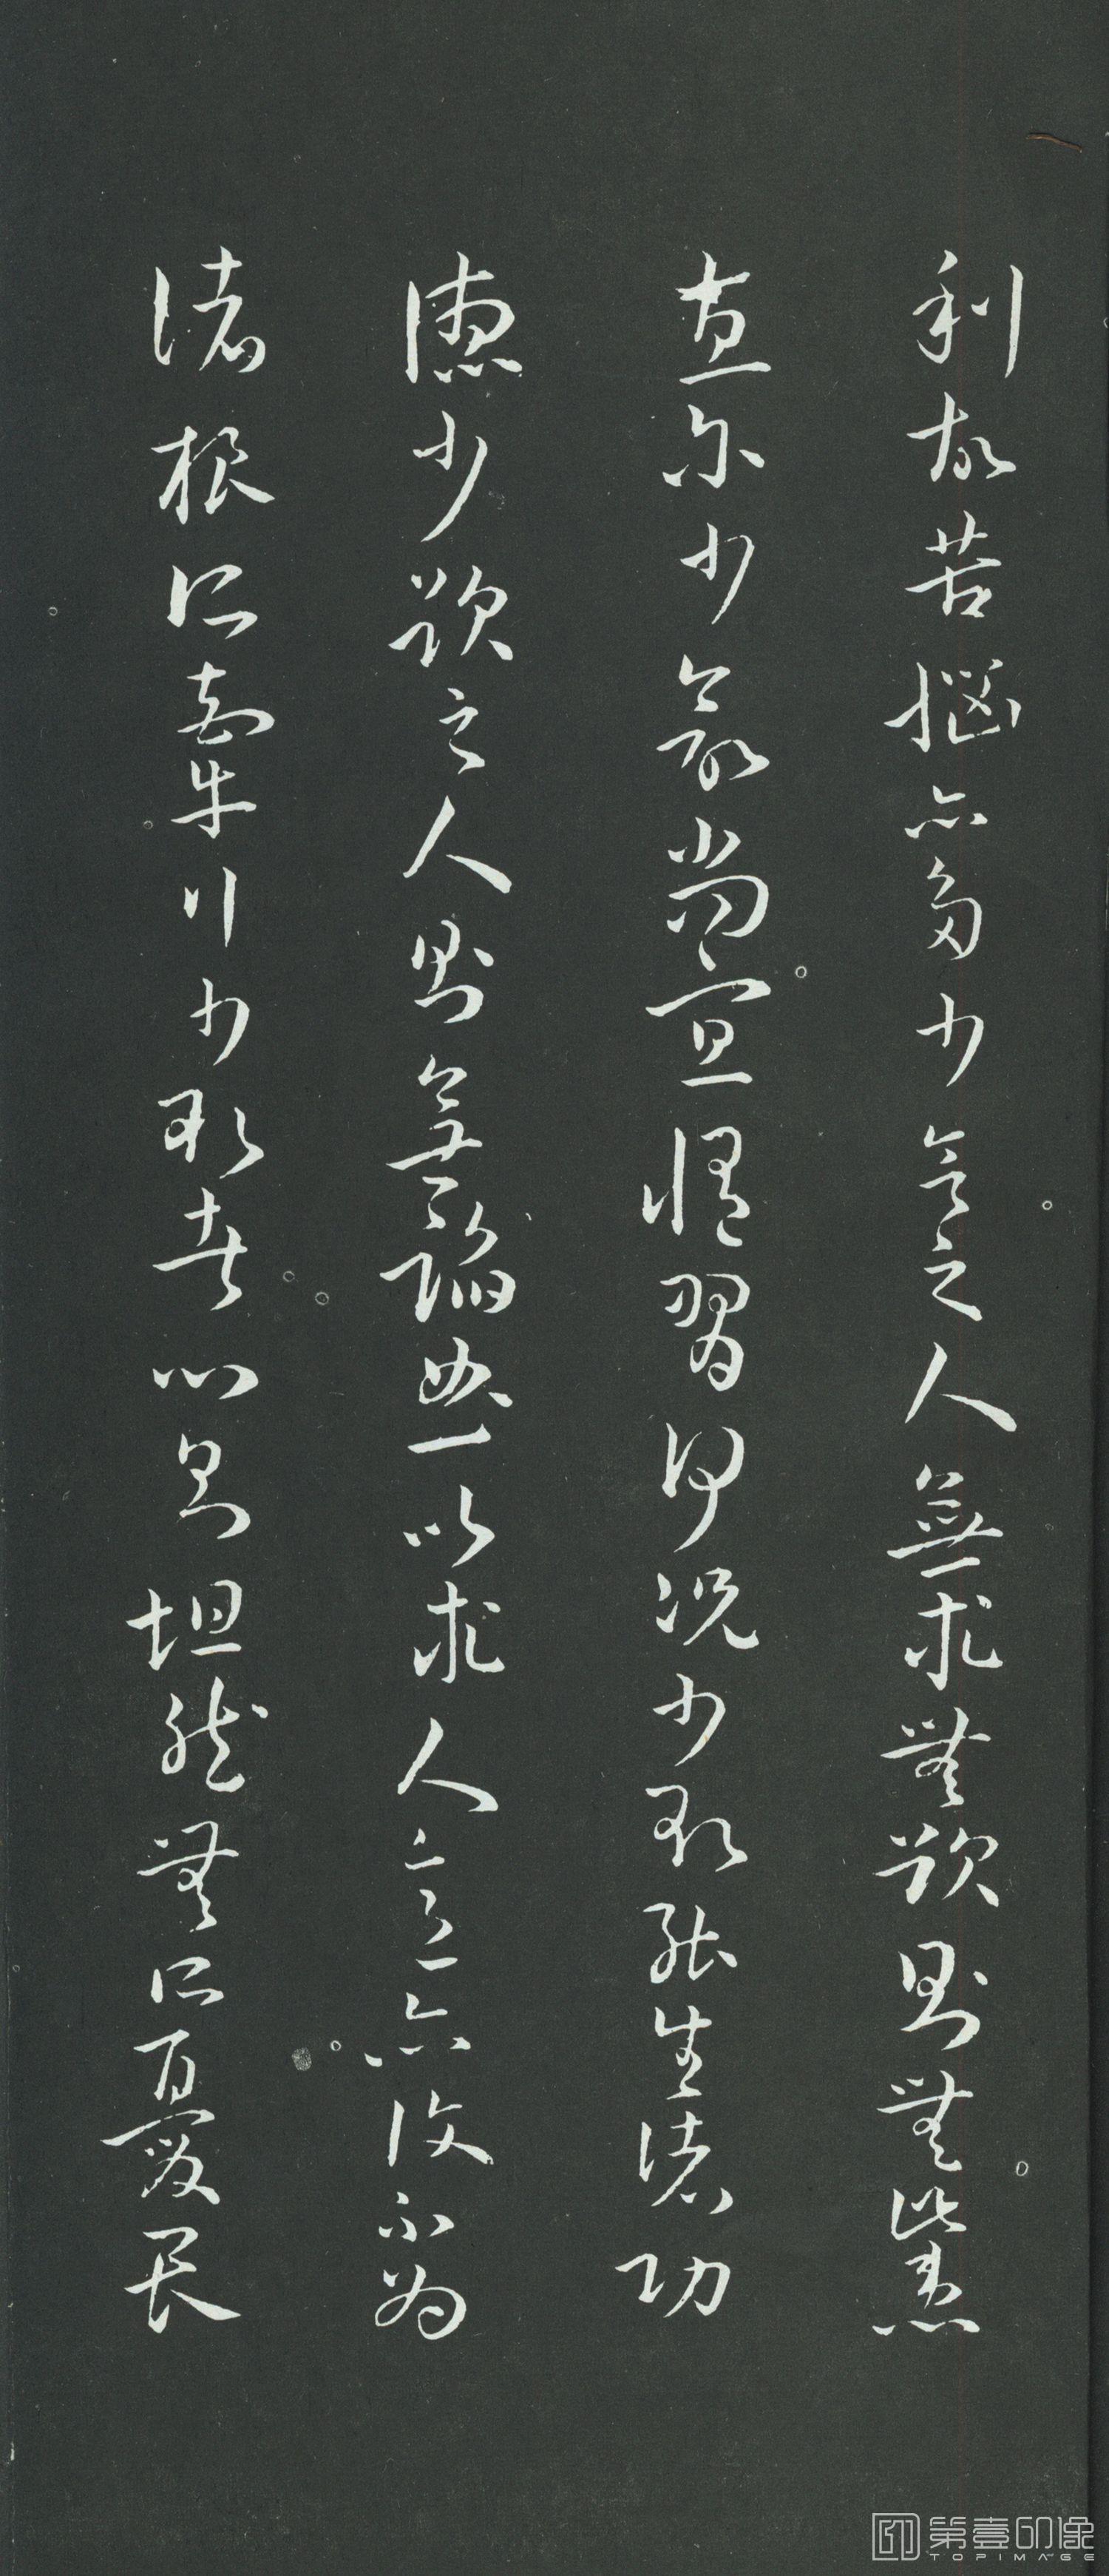 利故苦惱亦多少欲之人無求無欲則無此患
直爾少欲尚宜修習何況少欲能生諸功
德少欲之人則無諂曲以求人意亦復不為
諸根所牽行少欲者心則坦然無所憂畏
第壹印像
TOPIMAGE